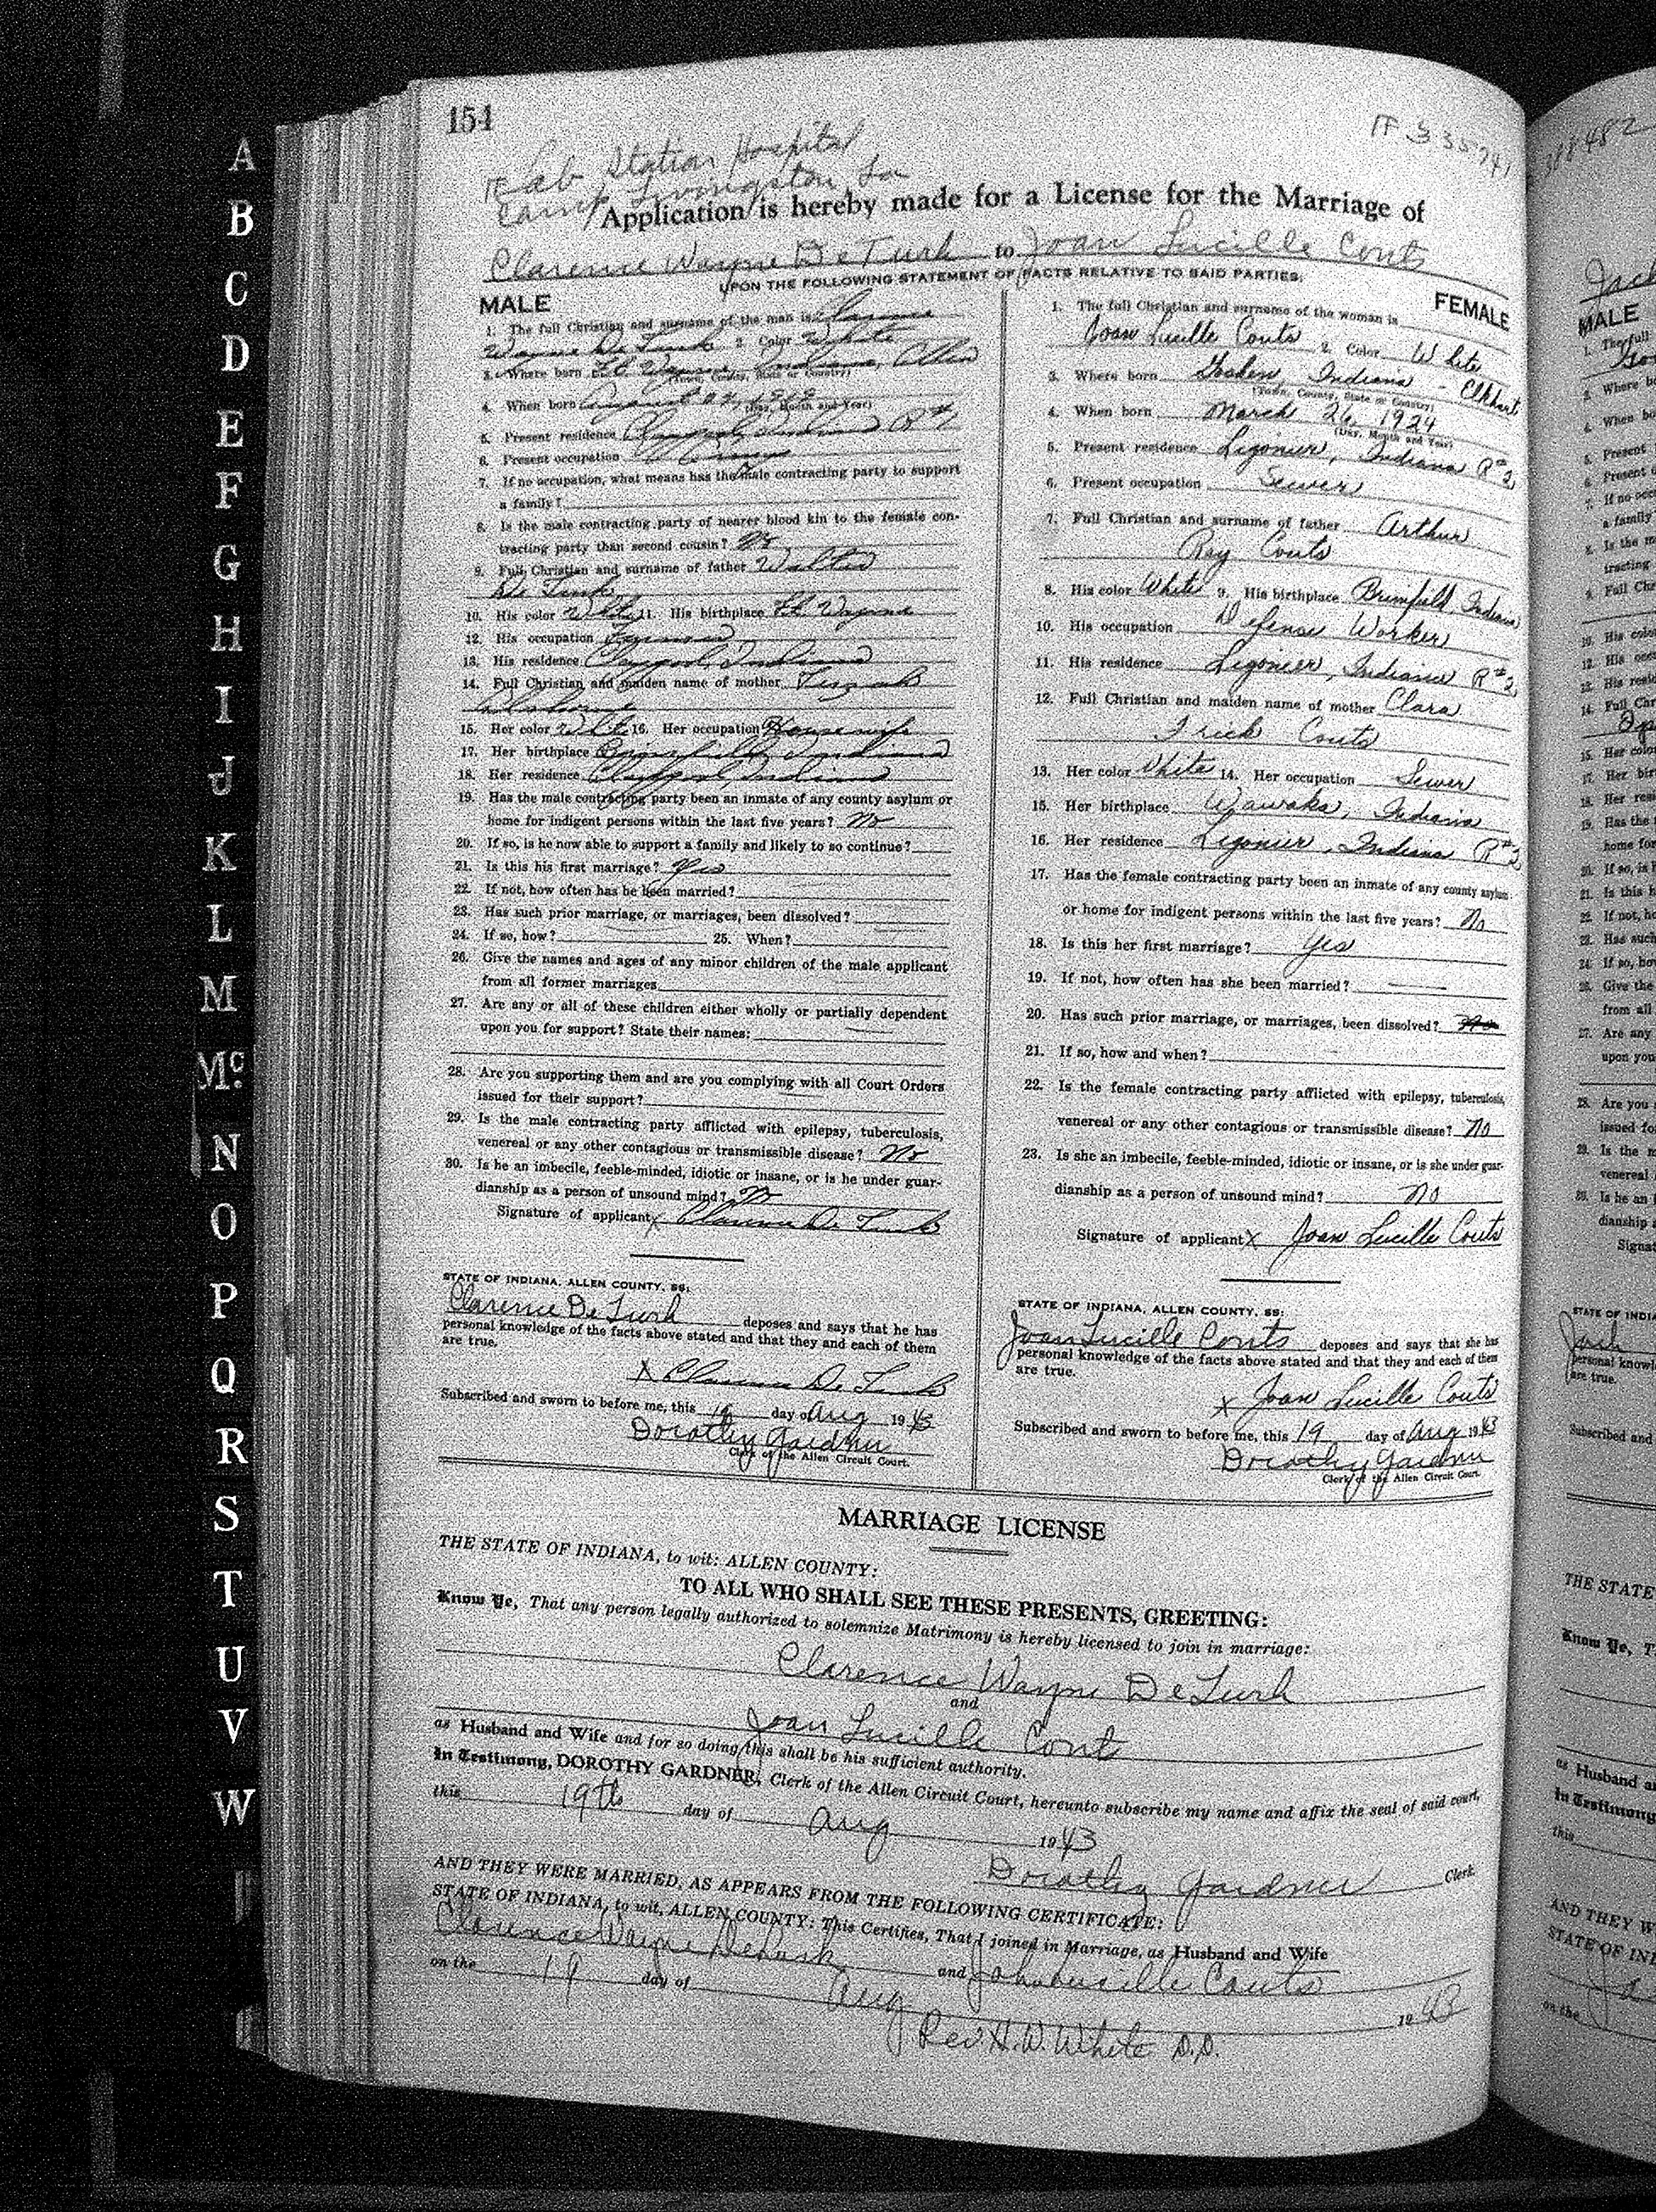 A
B
C
D
E
F
G
H
I
J
K
L
M
Mc.
N
O
P
Q
R
S
T
U
V
W
154
Lab Station Hospital
Camp Livingston, La
Application is hereby made for a License for the Marriage of
Clarence Wayne De Turk to Joan Lucille Couts
UPON THE FOLLOWING STATEMENT OF FACTS RELATIVE TO SAID PARTIES:
MALE
1. The full Christian and surname of the man is Clarence
Wayne De Turk 2. Color White
3. Where born Ft. Wayne, Indiana, Allen
(Town, County, State or Country)
4. When born August
(Day, Month and Year)
5. Present residence Claypool, Indiana R#1
6. Present occupation
7. If no occupation, what means has the male contracting party to support
a family?
8. Is the male contracting party of nearer blood kin to the female con-
tracting party than second cousin? No
9. Full Christian and surname of father Walter
De Turk
10. His color White 11. His birthplace Ft. Wayne
12. His occupation Farmer
13. His residence Claypool, Indiana
14. Full Christian and maiden name of mother
15. Her color White 16. Her occupation Housewife
17. Her birthplace Indiana
18. Her residence Claypool, Indiana
19. Has the male contracting party been an inmate of any county asylum or
home for indigent persons within the last five years? No
20. If so, is he now able to support a family and likely to so continue?
21. Is this his first marriage? Yes
22. If not, how often has he been married?
23. Has such prior marriage, or marriages, been dissolved?
24. If so, how? 25. When?
26. Give the names and ages of any minor children of the male applicant
from all former marriages
27. Are any or all of these children either wholly or partially dependent
upon you for support? State their names:
28. Are you supporting them and are you complying with all Court Orders
issued for their support?
29. Is the male contracting party afflicted with epilepsy, tuberculosis,
venereal or any other contagious or transmissible disease? No
30. Is he an imbecile, feeble-minded, idiotic or insane, or is he under guar-
dianship as a person of unsound mind? No
Signature of applicant x Clarence De Turk
STATE OF INDIANA, ALLEN COUNTY, SS:
Clarence De Turk deposes and says that he has
personal knowledge of the facts above stated and that they and each of them
are true.
x Clarence De Turk
Subscribed and sworn to before me, this 19 day of Aug 1943
Dorothy Gardner
Clerk of the Allen Circuit Court.
FEMALE
1. The full Christian and surname of the woman is
Joan Lucille Couts 2. Color White
3. Where born Goshen, Indiana - Elkhart
(Town, County, State or Country)
4. When born March 26, 1924
(Day, Month and Year)
5. Present residence Ligonier, Indiana R#2
6. Present occupation Sewer
7. Full Christian and surname of father Arthur
Roy Couts
8. His color White 9. His birthplace Brimfield Indiana
10. His occupation Defense Worker
11. His residence Ligonier, Indiana R#2
12. Full Christian and maiden name of mother Clara
Frick Couts
13. Her color White 14. Her occupation Sewer
15. Her birthplace Wawaka, Indiana
16. Her residence Ligonier, Indiana R#2
17. Has the female contracting party been an inmate of any county asylum
or home for indigent persons within the last five years? No
18. Is this her first marriage? Yes
19. If not, how often has she been married?
20. Has such prior marriage, or marriages, been dissolved?
21. If so, how and when?
22. Is the female contracting party afflicted with epilepsy, tuberculosis,
venereal or any other contagious or transmissible disease? No
23. Is she an imbecile, feeble-minded, idiotic or insane, or is she under guar-
dianship as a person of unsound mind? No
Signature of applicant x Joan Lucille Couts
STATE OF INDIANA, ALLEN COUNTY, SS:
Joan Lucille Couts deposes and says that she has
personal knowledge of the facts above stated and that they and each of them
are true.
x Joan Lucille Couts
Subscribed and sworn to before me, this 19 day of Aug 1943
Dorothy Gardner
Clerk of the Allen Circuit Court.
MARRIAGE LICENSE
THE STATE OF INDIANA, to wit: ALLEN COUNTY:
TO ALL WHO SHALL SEE THESE PRESENTS, GREETING:
Know Ye, That any person legally authorized to solemnize Matrimony is hereby licensed to join in marriage:
Clarence Wayne De Turk
and
Joan Lucille Cout
as Husband and Wife and for so doing this shall be his sufficient authority.
In Testimony, DOROTHY GARDNER, Clerk of the Allen Circuit Court, hereunto subscribe my name and affix the seal of said court,
this 19th day of Aug 1943
Dorothy Gardner Clerk
AND THEY WERE MARRIED, AS APPEARS FROM THE FOLLOWING CERTIFICATE:
STATE OF INDIANA, to wit, ALLEN COUNTY: This Certifies, That I joined in Marriage, as Husband and Wife
Clarence Wayne Deturk and Johnlucille Couts
on the 19 day of Aug 1943
Rev. H. W. White D.D.